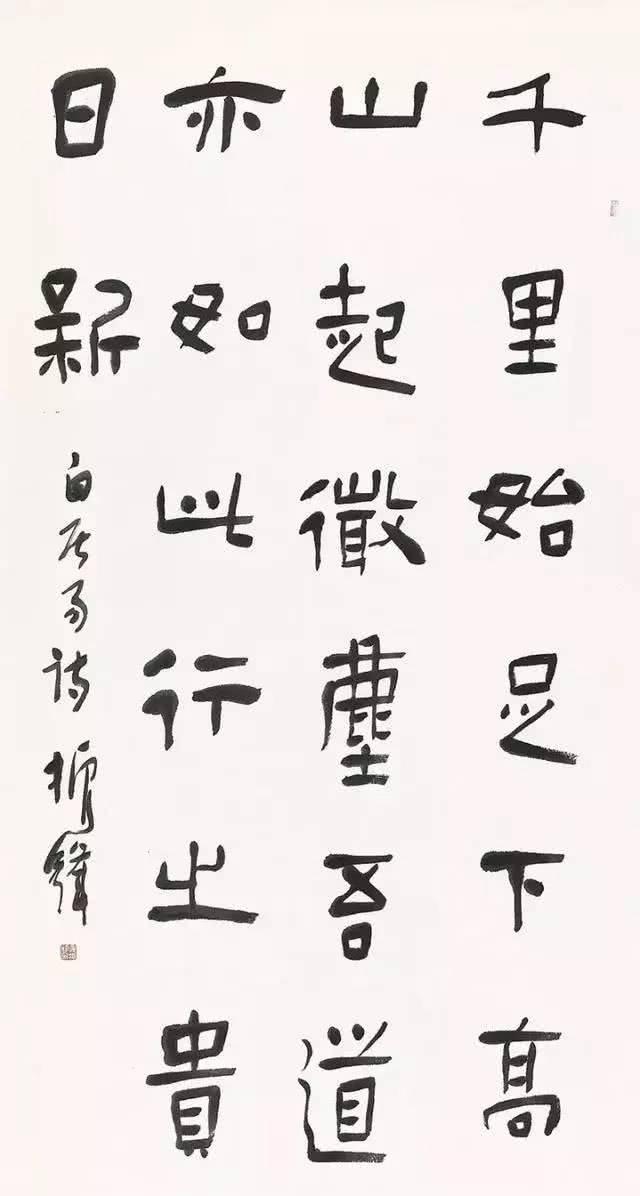 千里始足下高
山起微塵吾道
亦如此行之貴
日新
白居易詩